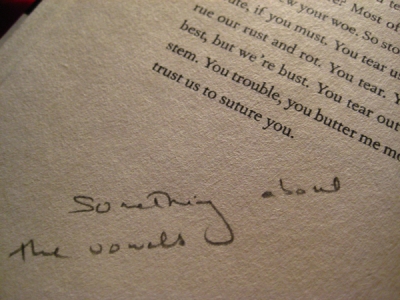 Most of
ute, if you must. You tear us
rue our rust and rot. You tear. Y
best, but we're bust. You tear out
stem. You trouble, you butter me mo
trust us to suture you.
Something about
the vowels